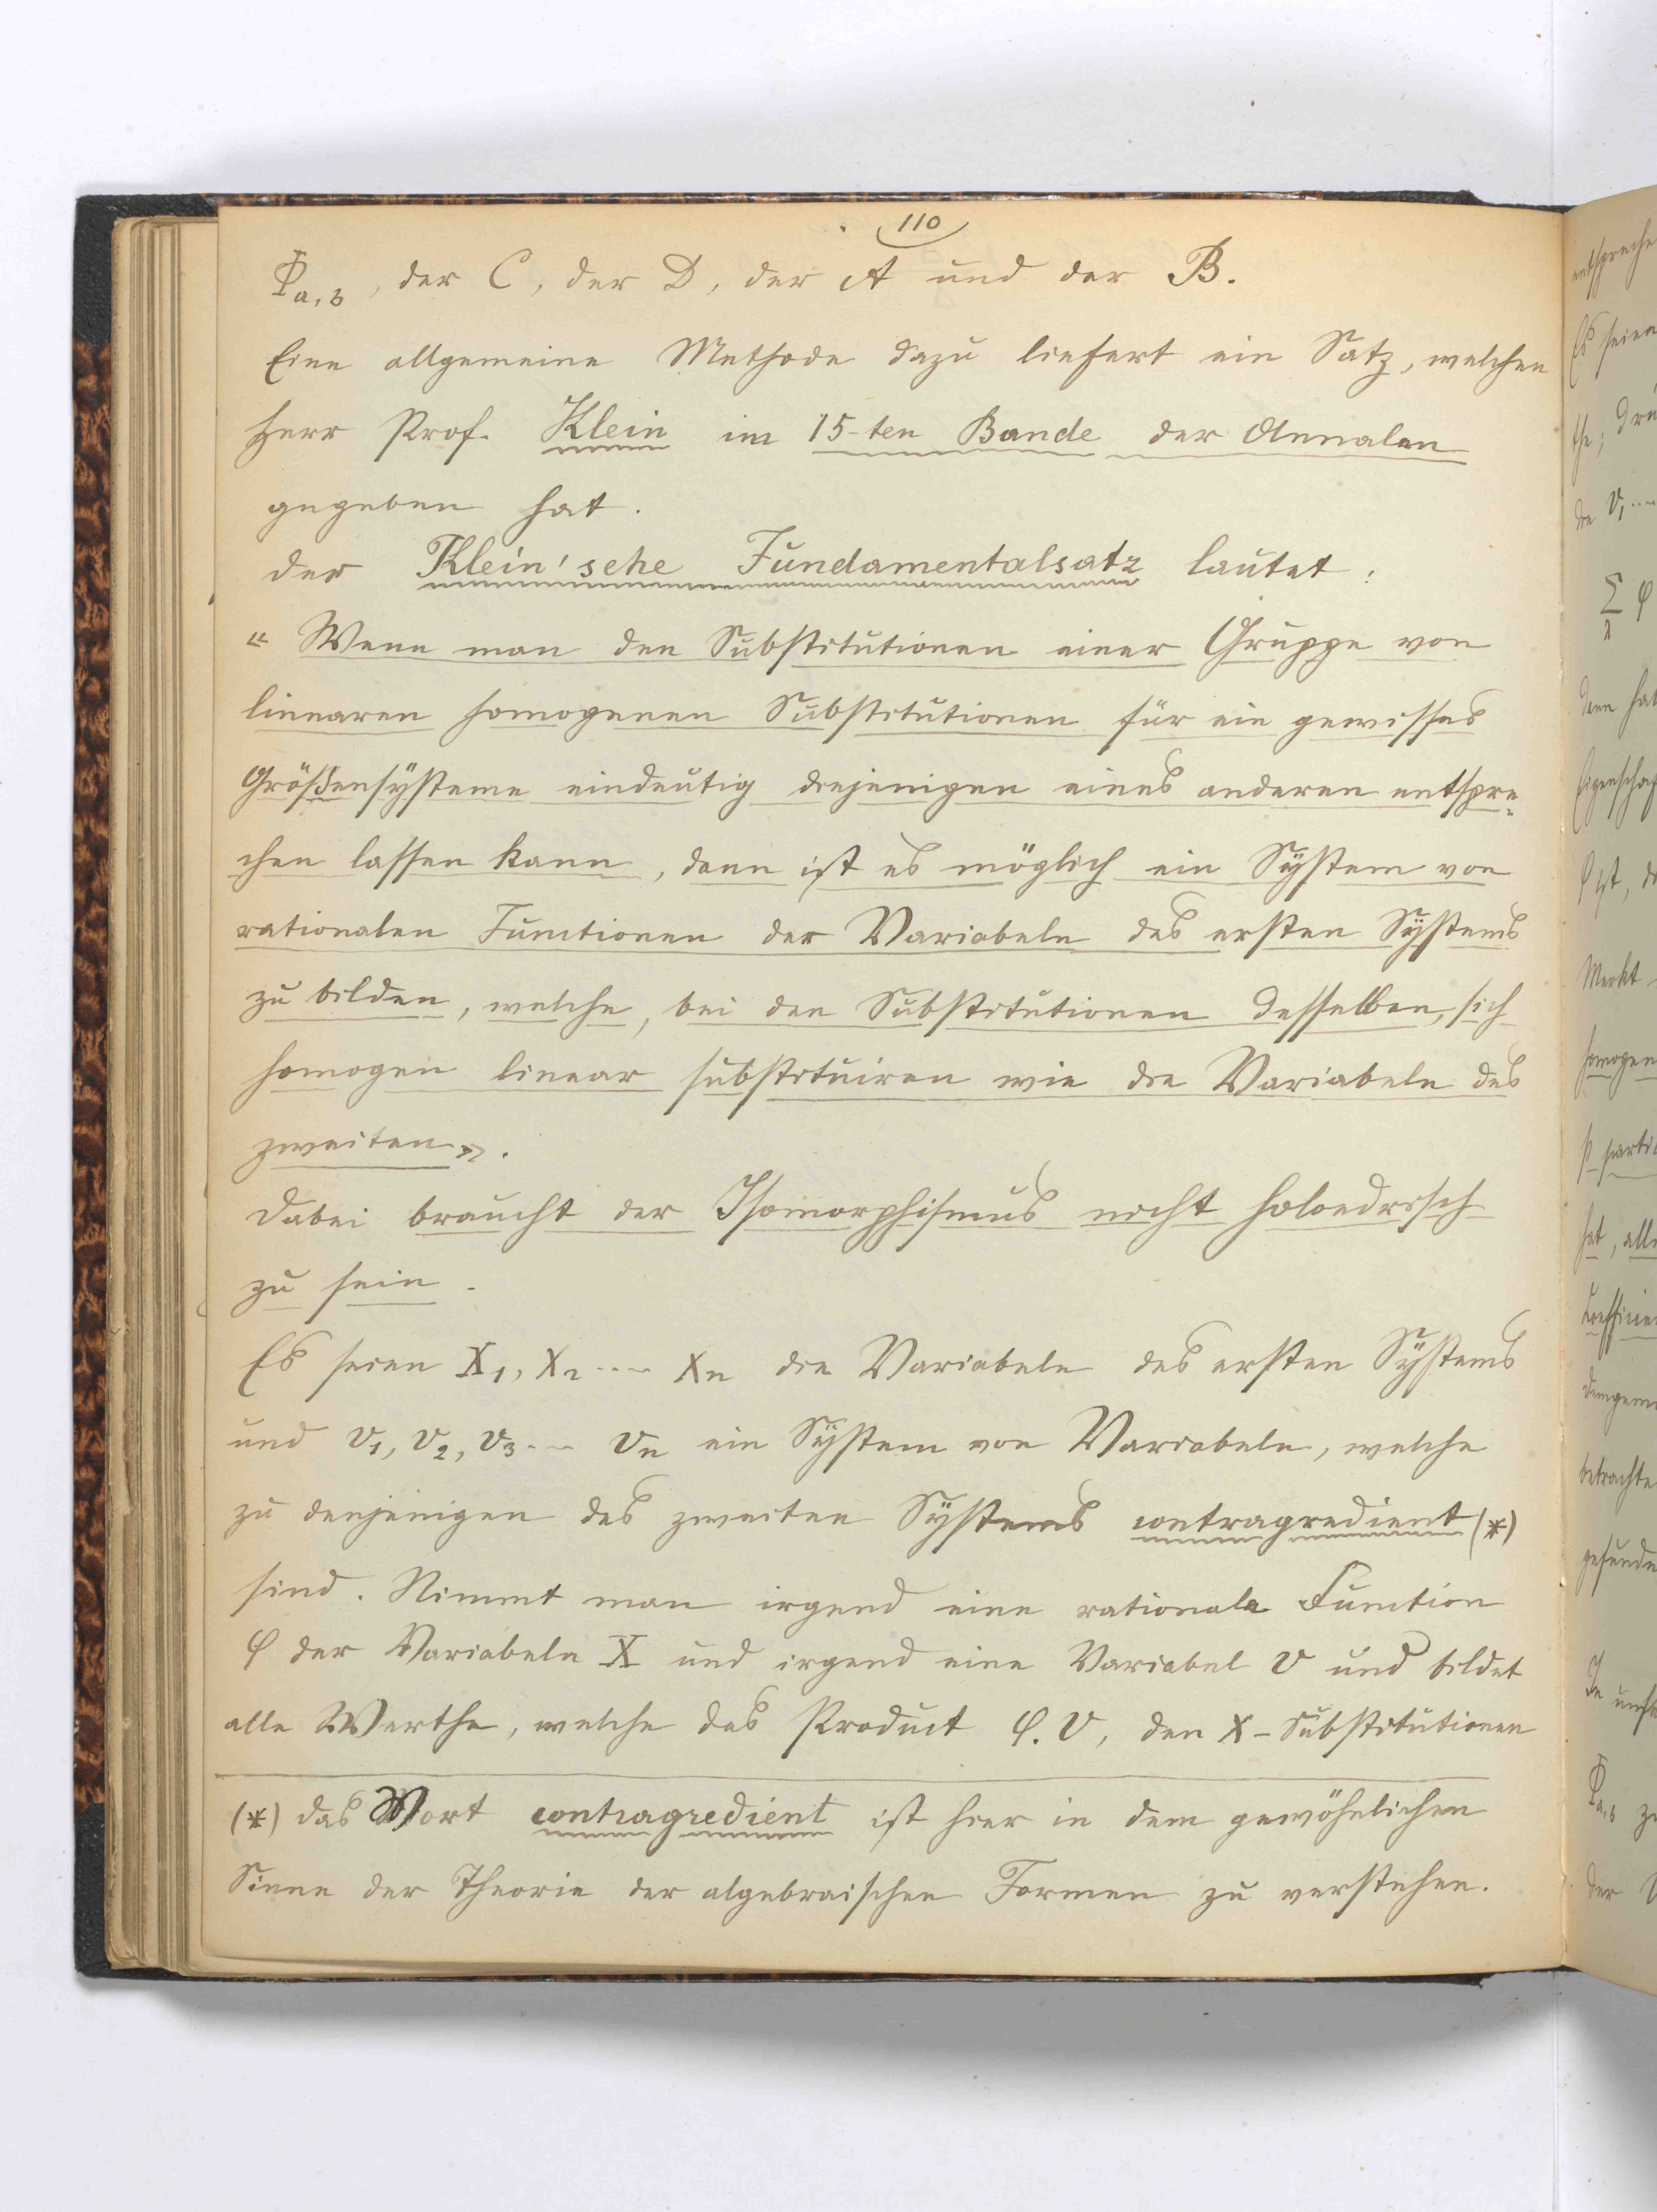 110
Φa,3, der C, der D, der A und der B.
Eine allgemeine Methode dazu liefert ein Satz, welchen
Herr Prof. Klein im 15-ten Bande der Annalen
gegeben hat.
der Klein'sche Fundamentalsatz lautet:
« Wenn man den Substitutionen einer Gruppe von
linearen homogenen Substitutionen für ein gewisses
Größensysteme eindeutig diejenigen eines anderen entspre„
chen lassen kann, dann ist es möglich ein System von
rationalen Functionen der Variabeln des ersten Systems
zu bilden, welche, bei den Substitutionen desselben, sich
homogen linear substituiren wie die Variabeln des
zweiten ».
Dabei braucht der Isomorphismus nicht holoedrisch
zu sein.
Es seien X1, X2 ---- Xn die Variabeln des ersten Systems
und v1, v2, v3 --- vn ein System von Variabeln, welche
zu denjenigen des zweiten Systems contragredient (*)
sind. Nimmt man irgend eine rationale Function
φ der Variabeln X und irgend eine Variabel v und bildet
alle Werthe, welche das Product φ.v, den X-Substitutionen
(*) das Wort contragredient ist hier in dem gewöhnlichen
Sinne der Theorie der algebraischen Formen zu verstehen.